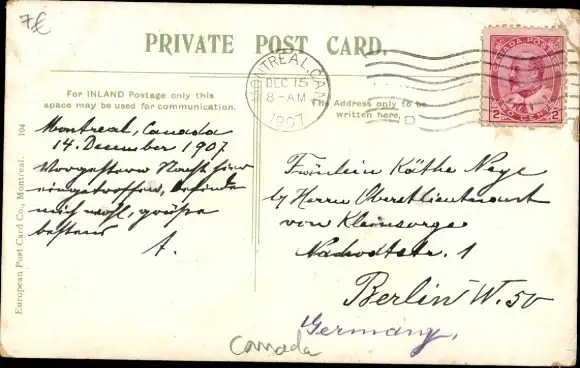 7€
PRIVATE POST CARD.
MONTREAL, CAN.
DEC 15
8-AM
1907
D
CANADA POSTAGE
2 TWO CENTS 2
For INLAND Postage only this
space may be used for communication.
The Address only to be
written here.
Montreal, Canada
14. Dezember 1907
Vorgestern Nacht hier
eingetroffen, befinde
mich wohl, grüße
bestens
A.
Fräulein Käthe Neye
by Herrn Oberstlieutenant
von Kleinsorge
Nachodstr. 1
Berlin W. 50
Germany.
Canada
European Post Card Co., Montreal. 104